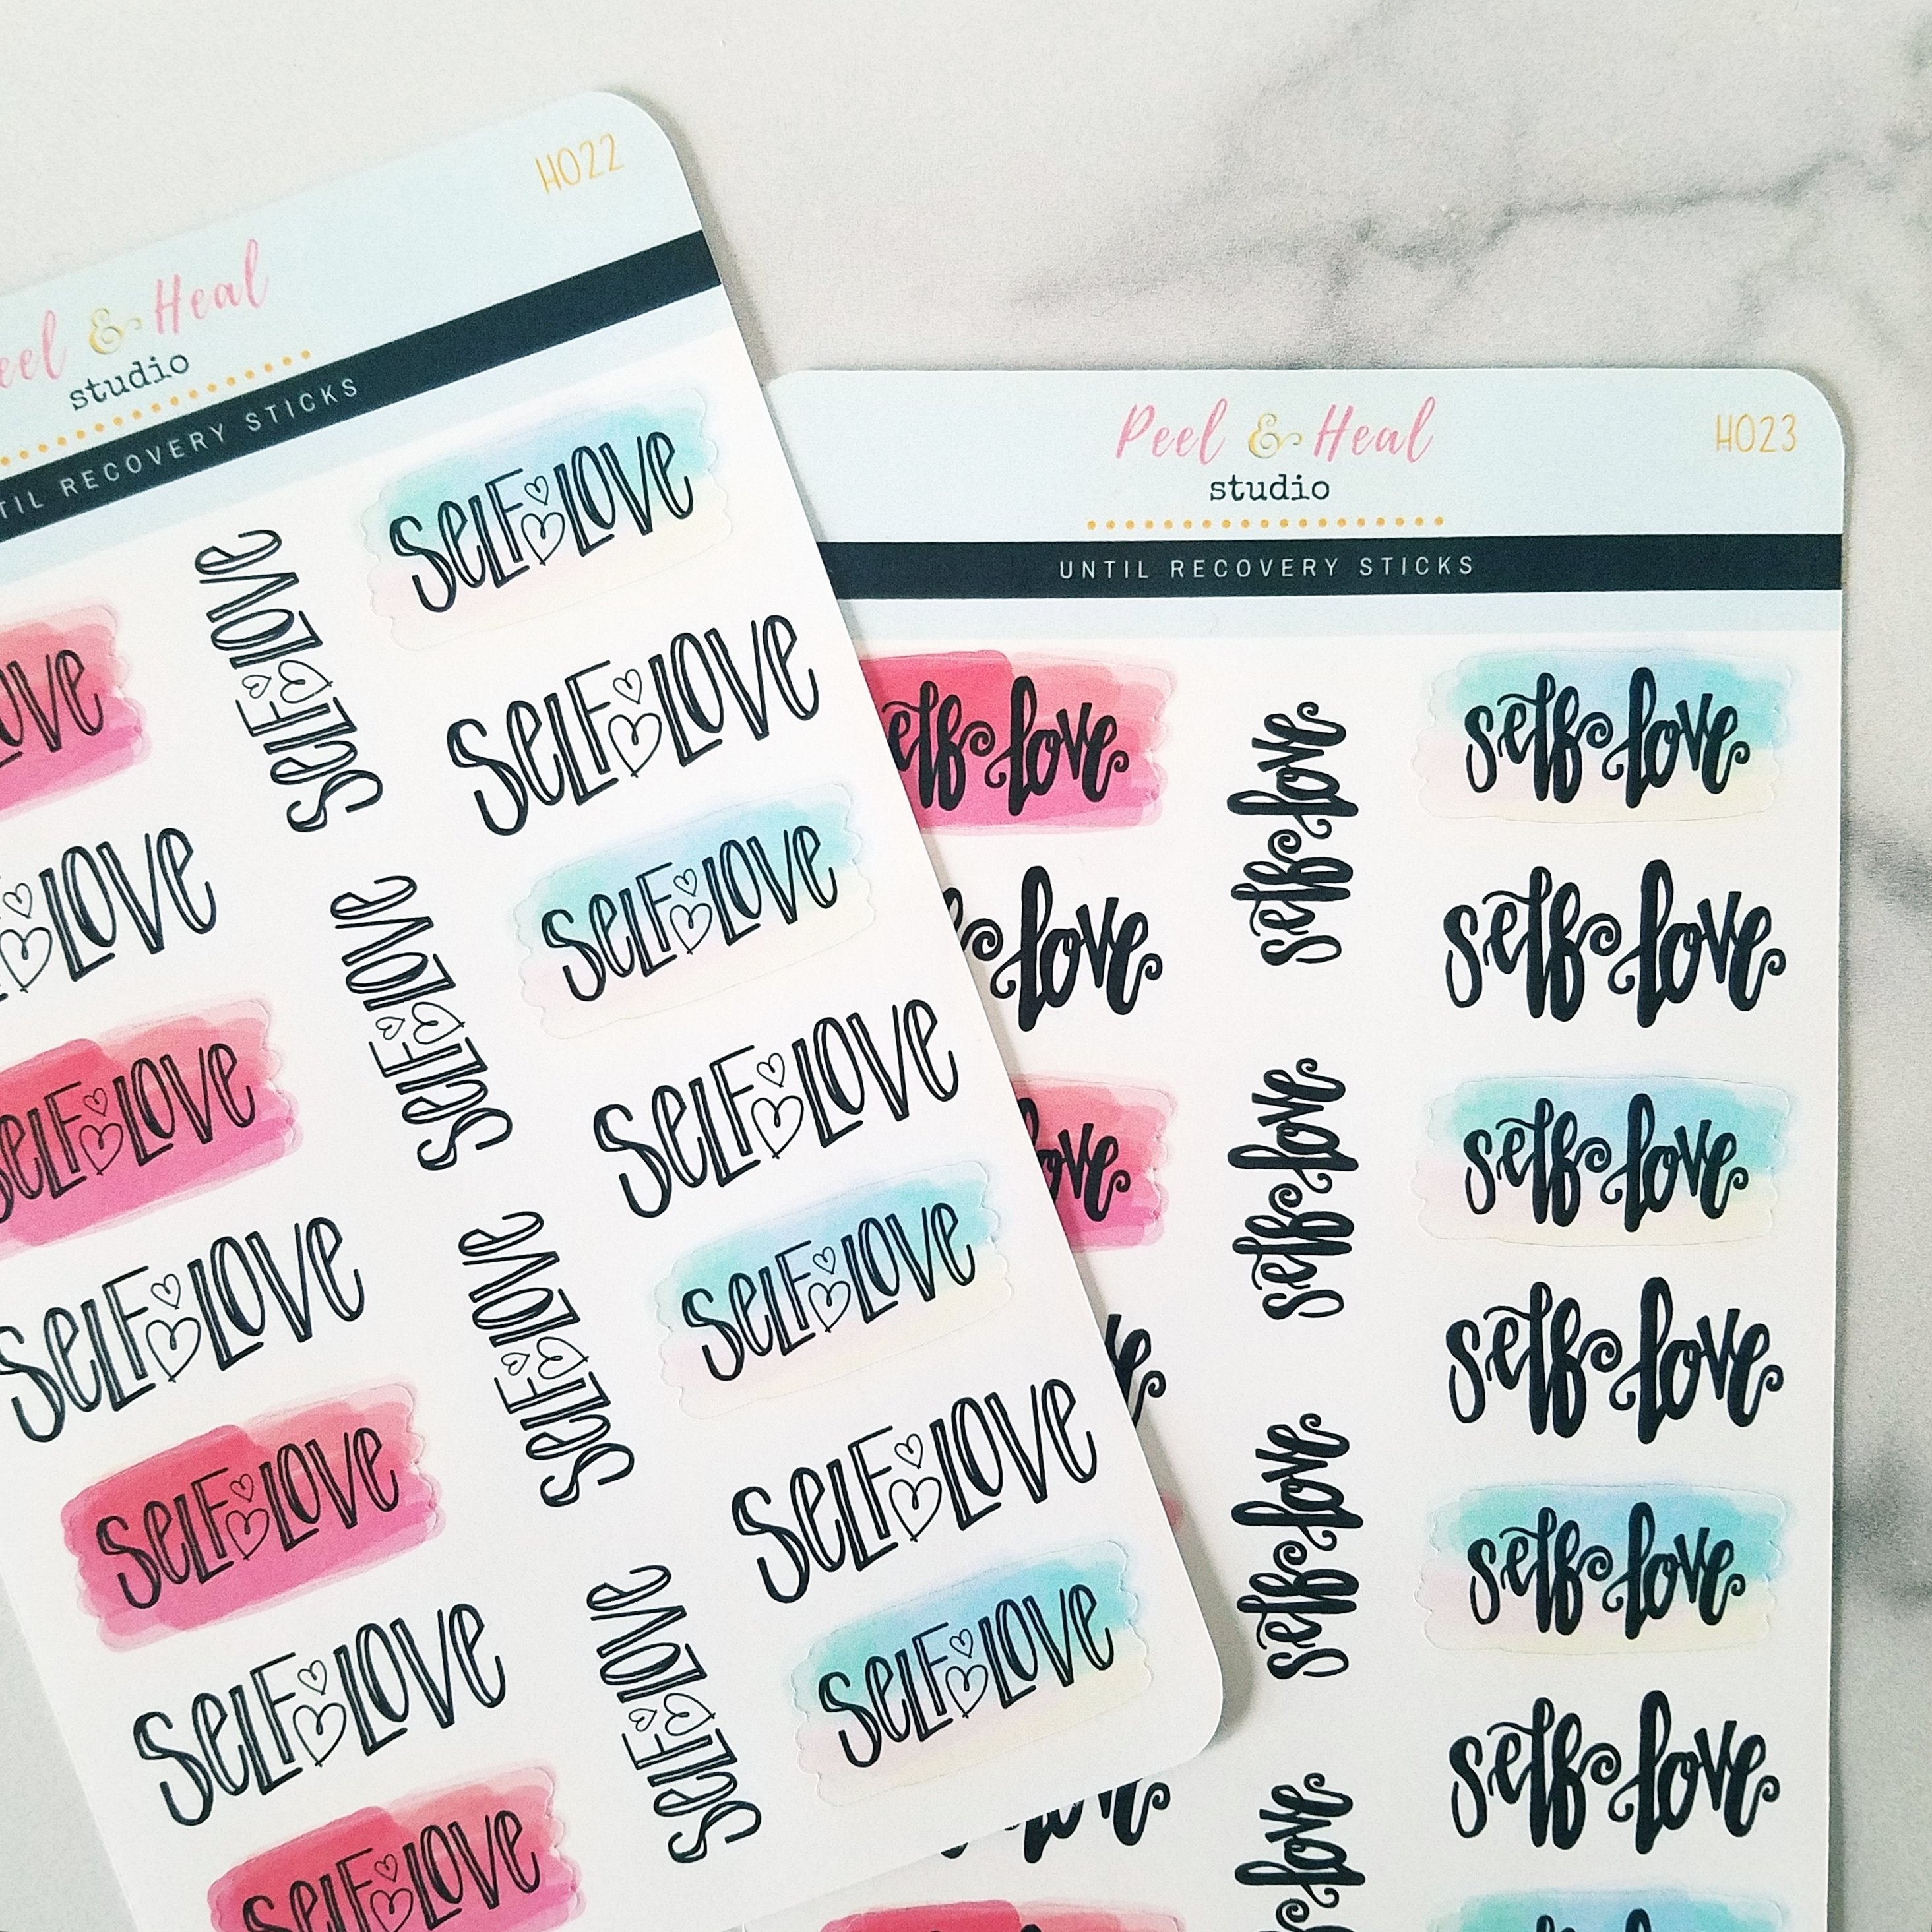 H022
Peel & Heal
studio
UNTIL RECOVERY STICKS
SELF LOVE
SELF LOVE
SELF LOVE
SELF LOVE
SELF LOVE
SELF LOVE
SELF LOVE
LOVE
LOVE
SELF LOVE
SELF LOVE
SELF LOVE
SELF LOVE
SELF LOVE
SELF LOVE
SELF LOVE
SELF LOVE
SELF LOVE
H023
Peel & Heal
studio
UNTIL RECOVERY STICKS
self love
love
love
self love
self love
self love
self love
self love
self love
self love
self love
self love
love